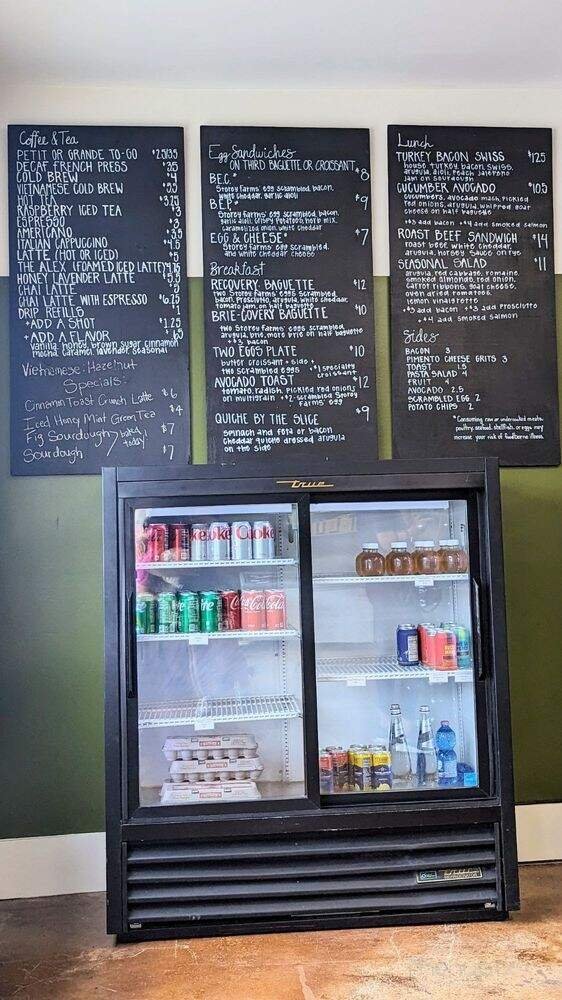 Coffee & Tea
PETIT OR GRANDE TO-GO
DECAF FRENCH PRESS
COLD BREW $4
VIETNAMESE COLD BREW
HOT TEA
RASPBERRY ICED TEA $3
ESPRESSO $3
AMERICANO
ITALIAN CAPPUCCINO
LATTE (HOT OR ICED) $5
THE ALEX (FOAMED ICED LATTE)
HONEY LAVENDER LATTE
CHAI LATTE
CHAI LATTE WITH ESPRESSO $6.25
DRIP REFILLS $1
+ADD A SHOT $1.25
+ADD A FLAVOR
vanilla, honey, brown sugar cinnamon
mocha, caramel, lavender, seasonal
Vietnamese: Hazelnut
Specials:
Cinnamon Toast Crunch Latte $6
Iced Honey Mint Green Tea $4
Fig Sourdough baked today! $7
Sourdough $7
Egg Sandwiches
ON THIRD BAGUETTE OR CROISSANT
BEC* $8
Storey Farms' egg scrambled, bacon,
white cheddar, garlic aioli
BELT* $9
Storey Farms' egg scrambled, bacon,
garlic aioli, crispy potatoes, herb mix,
caramelized onion, white cheddar
EGG & CHEESE* $7
Storey Farms' egg scrambled,
and white cheddar cheese
Breakfast
RECOVERY BAGUETTE $12
two Storey Farms' eggs scrambled,
bacon, prosciutto, arugula, white cheddar,
tomato jam, on half baguette
BRIE-COVERY BAGUETTE $10
two Storey Farms' eggs scrambled,
arugula, brie, more brie on half baguette
+$3 bacon
TWO EGGS PLATE $10
butter croissant + side +
two scrambled eggs *+$1 specialty
croissant*
AVOCADO TOAST $12
tomato, radish, pickled red onions
on multigrain *+$2 scrambled Storey
Farms' egg
QUICHE BY THE SLICE $9
spinach and feta or bacon
cheddar quiche dressed arugula
on the side
Lunch
TURKEY BACON SWISS $12.5
house turkey, bacon, swiss,
arugula, aioli, peach jalapeno
jam on sourdough
CUCUMBER AVOCADO $10.5
cucumbers, avocado mash, pickled
red onions, arugula, whipped goat
cheese on half baguette
+$3 add bacon +$4 add smoked salmon
ROAST BEEF SANDWICH $14
roast beef, white cheddar,
arugula, horsey sauce on rye
SEASONAL SALAD $11
arugula, red cabbage, romaine,
smoked almonds, red onion,
carrot ribbons, goat cheese,
oven dried tomatoes,
lemon vinaigrette
+$3 add bacon +$3 add prosciutto
+$4 add smoked salmon
Sides
BACON 3
PIMENTO CHEESE GRITS 3
TOAST 1.5
PASTA SALAD 4
FRUIT 4
AVOCADO 2.5
SCRAMBLED EGG 2
POTATO CHIPS 2
*Consuming raw or undercooked meats,
poultry, seafood, shellfish, or eggs may
increase your risk of foodborne illness.
True
Coke
Coca-Cola